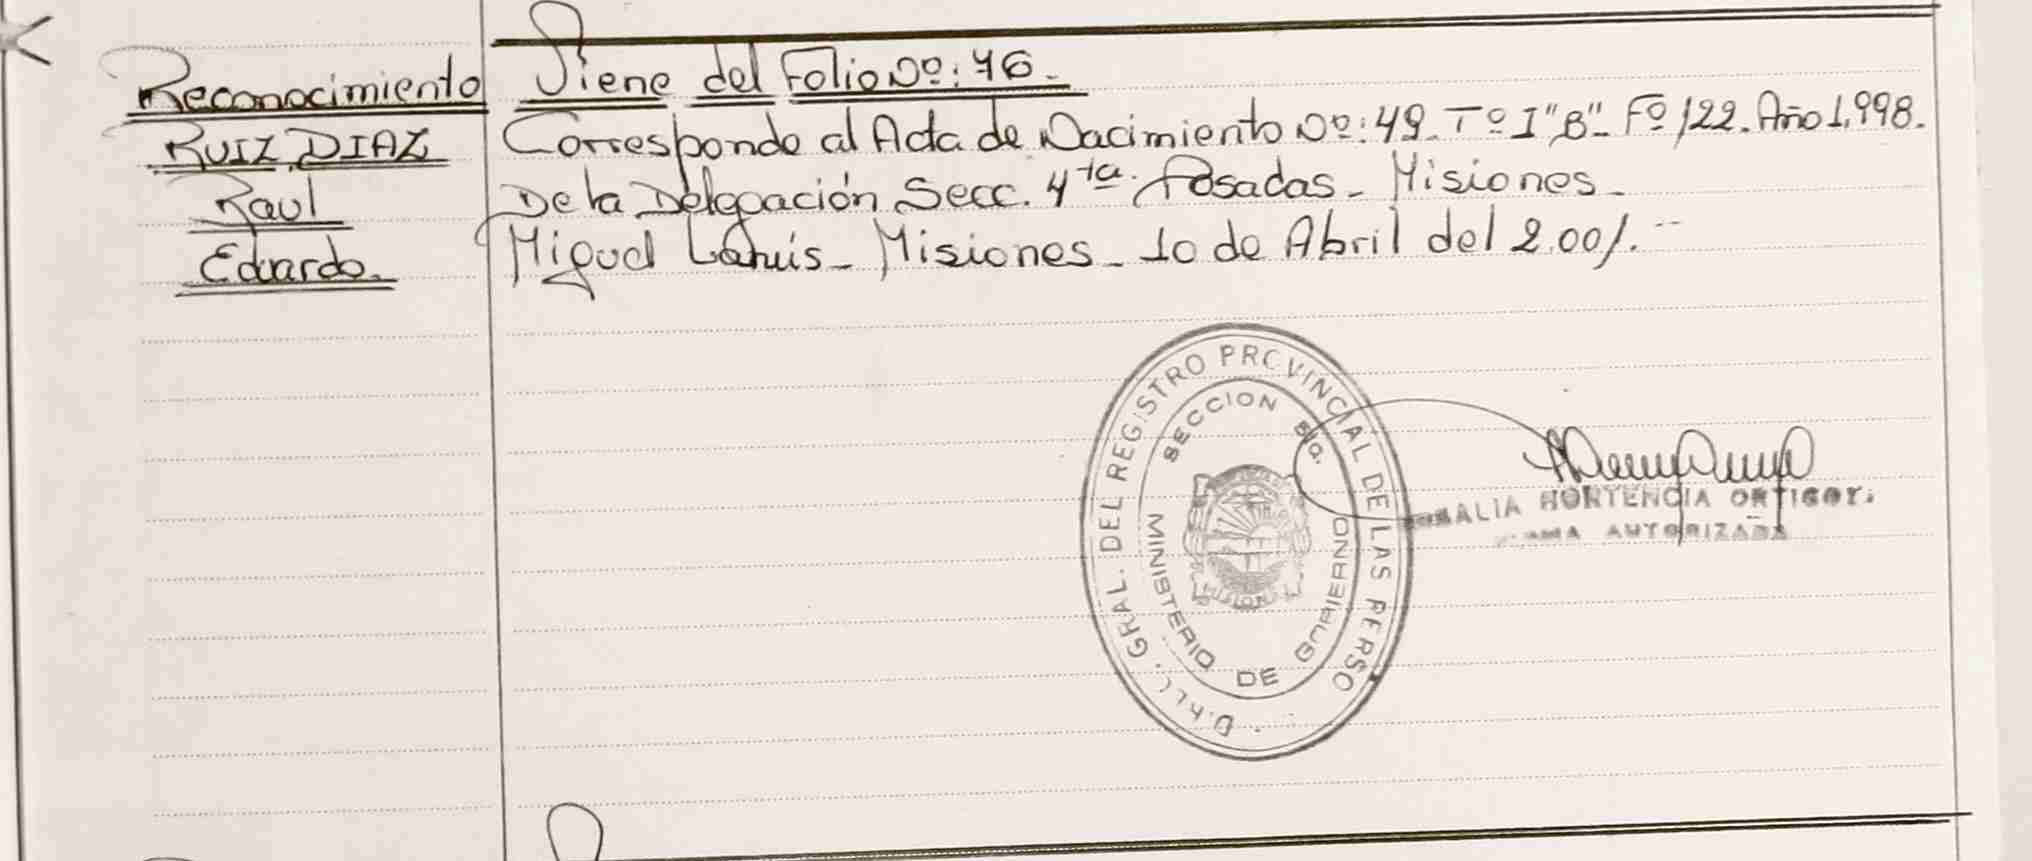 Reconocimiento
RUIZ DIAZ
Raul
Eduardo.
Viene del Folio Nº: 76.
Corresponde al Acta de Nacimiento Nº: 49. Tº I "B". Fº 122. Año 1.998.
De la Delegación Secc. 4ta. Posadas. Misiones.
Miguel Lanús. Misiones. 10 de Abril del 2.001.
GRAL. DEL REGISTRO PROVINCIAL DE LAS PERSO
SECCION 5ta.
MINISTERIO DE GOBIERNO
HORTENCIA
AUTORIZADA